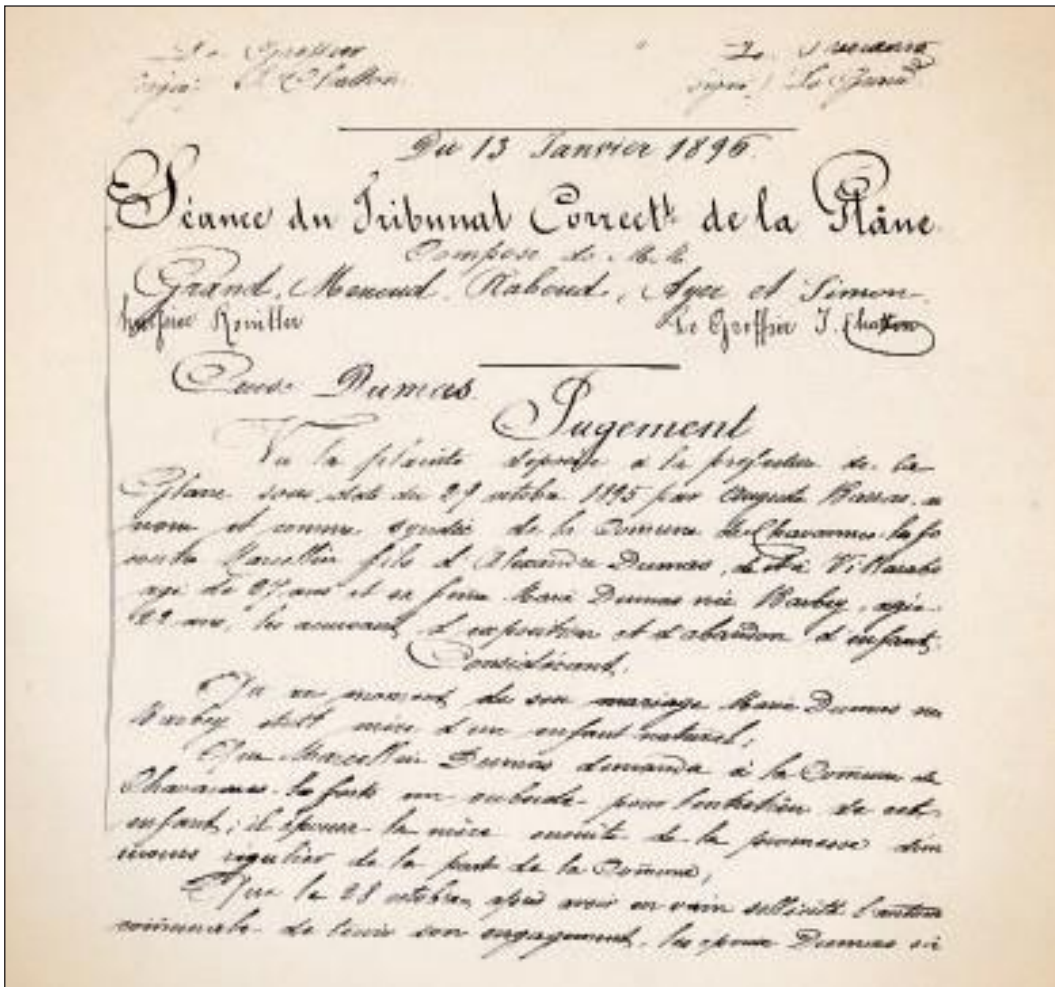 Le Greffier
signé: Chatton
Le Président
signé: Grand
Du 13 Janvier 1896.
Séance du Tribunal Correct.l de la Glâne
Composé de M.M.
Grand, Menoud, Raboud, Ayer et Simon.
huissier Rouiller
Le Greffier J. Chatton
Cause Dumas.
Jugement
Vu la plainte déposée à la préfecture de la
Glâne sous date du 29 octobre 1895 par Auguste au
nom et comme syndic de la Commune de Chavannes-les-fo
contre Marcellin fils d'Alexandre Dumas, de et à Villarabo
âgé de 27 ans et sa femme Marie Dumas née Barbey, âgée
22 ans, les accusant d'exposition et d'abandon d'enfant.
Considérant,
Qu'au moment de son mariage Marie Dumas née
Barbey était mère d'un enfant naturel;
Que Marcellin Dumas demanda à la Commune de
Chavannes-les-forts un subside pour l'entretien de cet
enfant; il épousa la mère ensuite de la promesse d'un
secours régulier de la part de la Commune;
Que le 28 octobre, après avoir en vain sollicité l'autori
communale de tenir son engagement, les époux Dumas